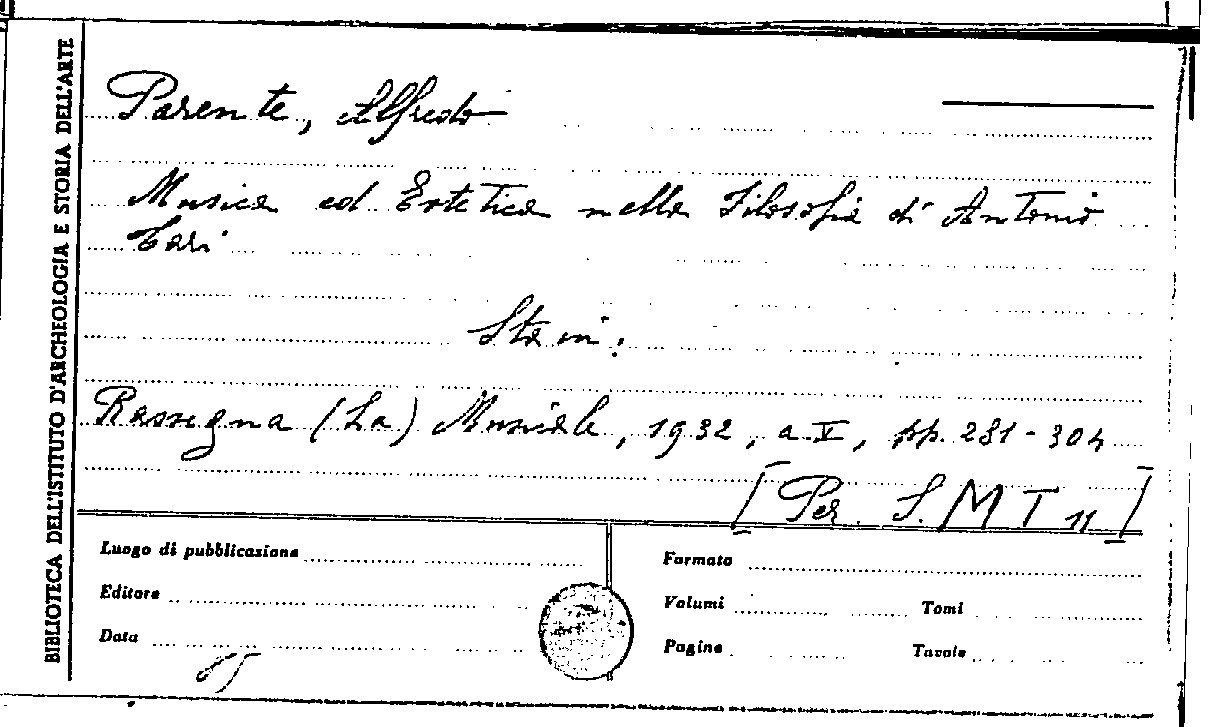 BIBLIOTECA DELL'ISTITUTO D'ARCHEOLOGIA E STORIA DELL'ARTE
Parente, Alfredo
Musica ed Estetica nella Filosofia di Antonio
Tari
Sta in:
Rassegna (La) Musicale, 1932, a. V, pp. 281-304
[Per. S. MT 11]
Luogo di pubblicazione
Editore
Data
Formato
Volumi Tomi
Pagine Tavole